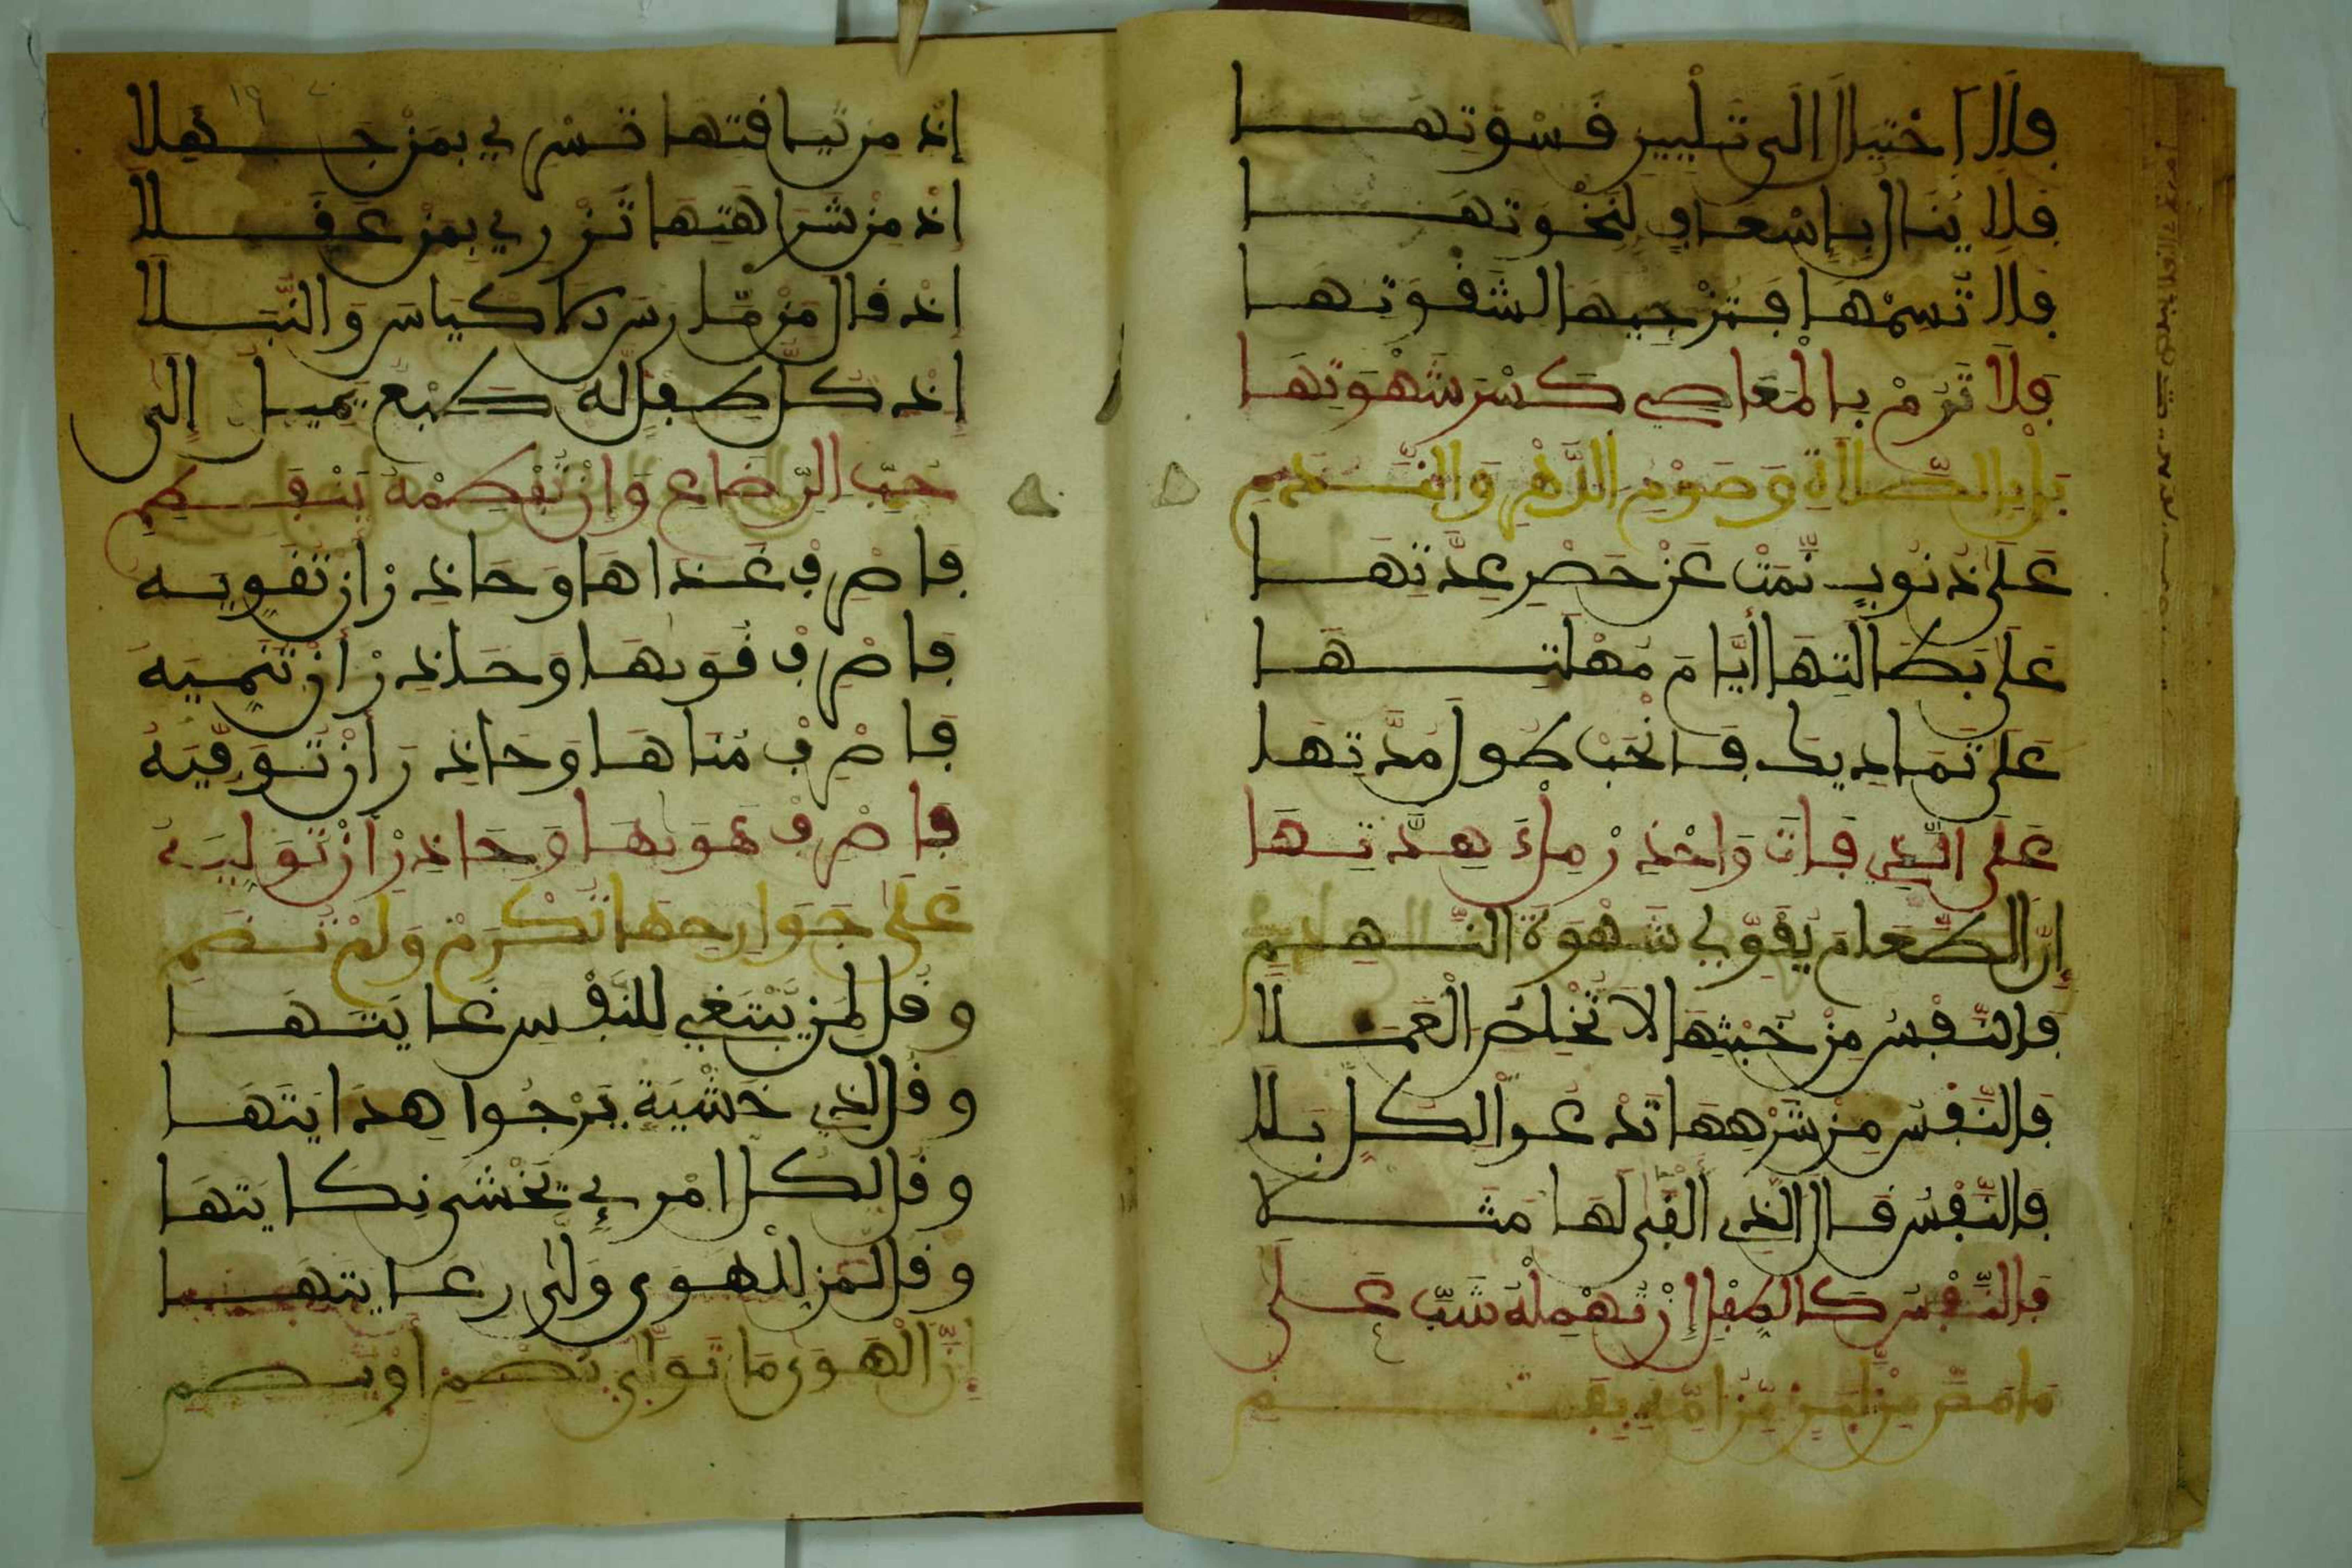 فلا احتيال الى تليين قسوتها
فلا ينال بإسعاف لنخوتها
فلا تسمها فترجيها لشقوتها
فلا ترم بالمعاصي كسر شهوتها
بل بالصلاة وصوم الدهر والندم
على ذنوب نمت عن حصر عدتها
على بطالتها أيام مهلتها
على تماديك فانحب طول مدتها
على الذي فات واحذر ملء هدتها
إن الطعام يقوي شهوة النهم
فالنفس من خبثها لا تخلص العملا
فالنفس من شرهها تدعوا لكل بلا
فالنفس قال الذي ألفى لها مثلا
فالنفس كالطفل إن تهمله شب على
إذ من تيافتها تسري بمن جهلا
إذ من شراهتها تزري بمن عقلا
إذ قال من مارس الاكياس والنبلا
إذ كل طفل له طبع يميل إلى
حب الرضاع وإن تفطمه ينفطم
فاصرف غذاها وحاذر أن تقويه
فاصرف قوىها وحاذر أن تنميه
فاصرف مناها وحاذر أن توفيه
فاصرف هوىها وحاذر أن توليه
على جوارحها تكرم ولم تضم
وقل لمن يبتغي للنفس غايتها
وقل لذي خشية يرجوا هدايتها
وقل لكل امرئ يخشى نكايتها
وقل لمن للهوى ولى رعايتها
إن الهوى ما تولى يصم أو يصم